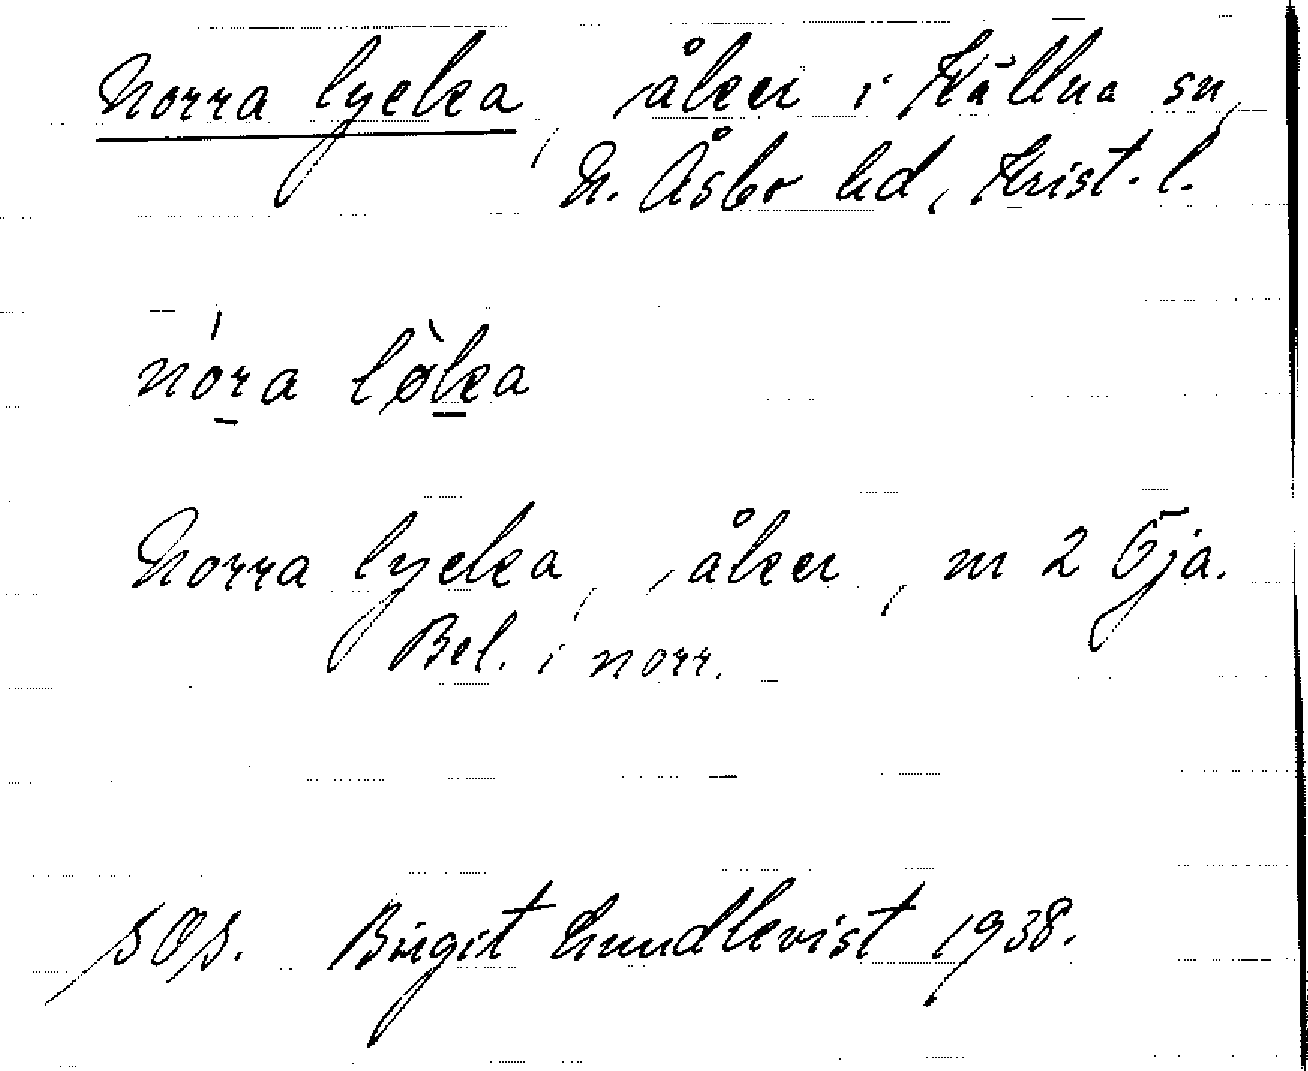 Norra lycka, åker i Källna sn,
N. Åsbo hd, Krist. l.
nóra lø̀ka
Norra lycka, åker, nr 2 Öja.
Bel. i norr.
Birgit Lundkvist 1938.